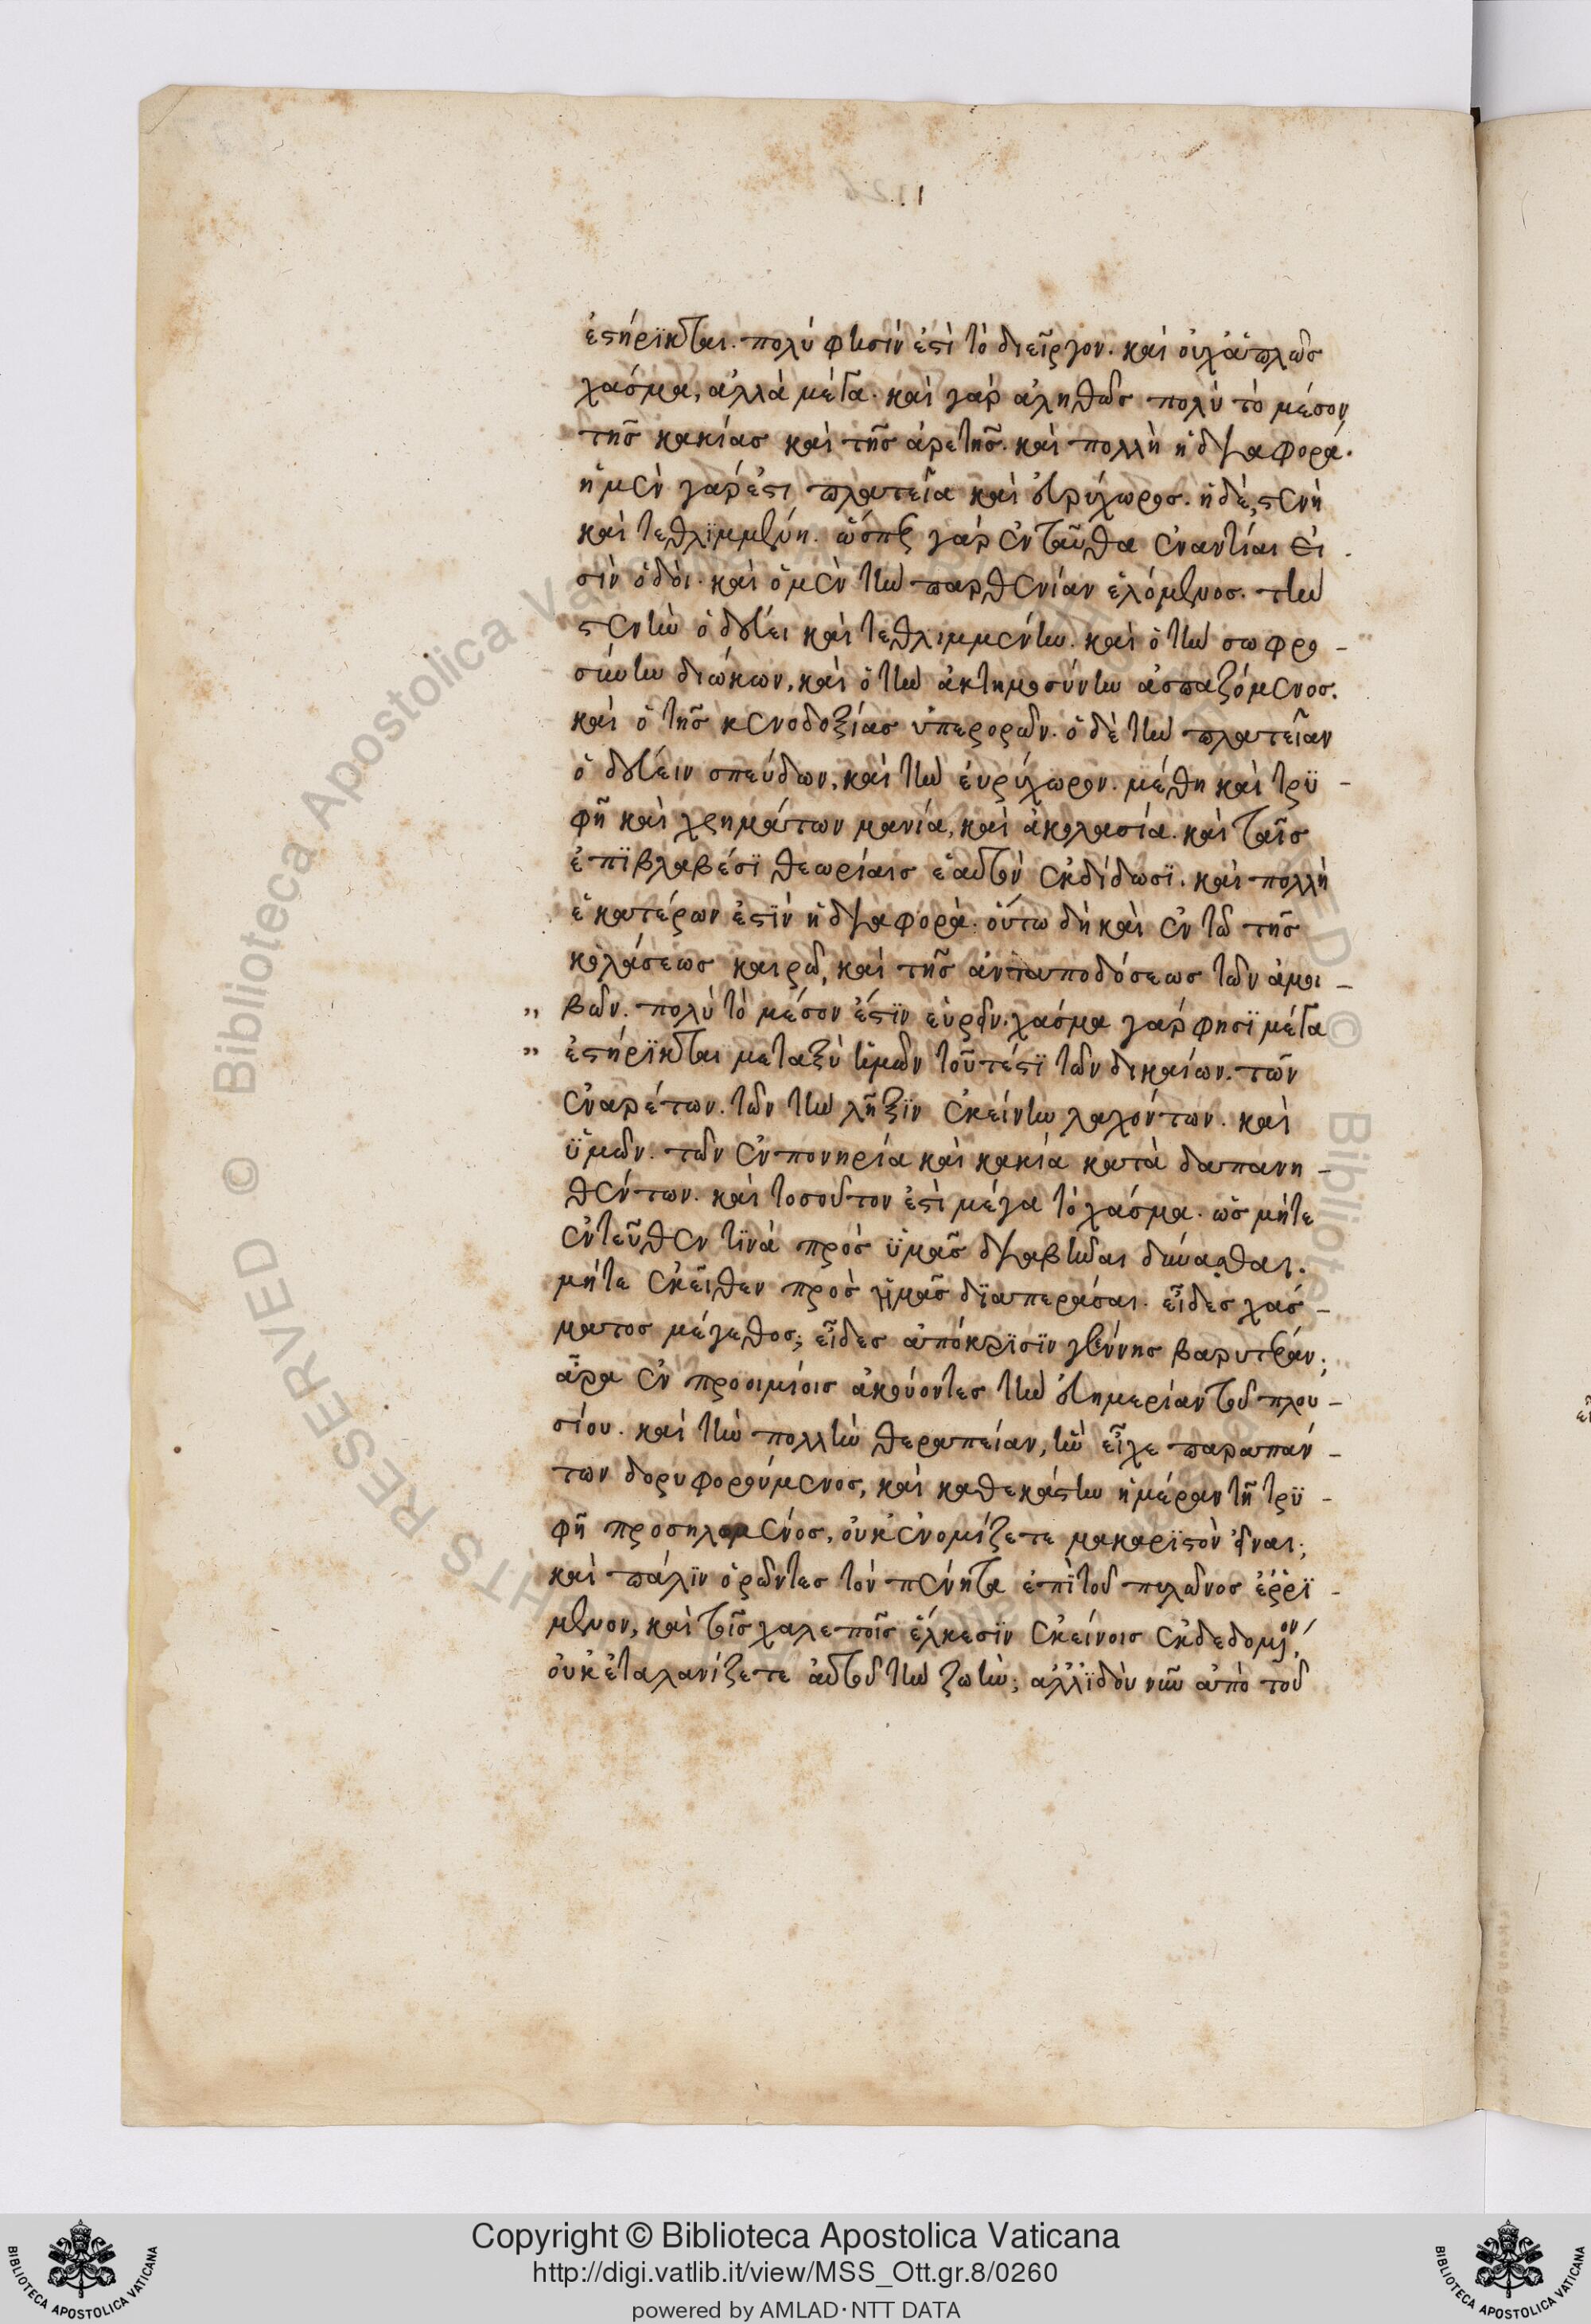 ἐστήρϊκται. πολύ φησίν ἐστὶ τὸ διεῖργον. καὶ οὐχἁπλῶς
χάσμα, ἀλλὰ μέγα. καὶ γὰρ ἀληθῶς πολὺ τὸ μέσον
τῆς κακίας καὶ τῆς ἀρετῆς. καὶ πολλὴ ἡ διαφορά.
ἡ μὲν γάρ ἐστι πλατεῖα καὶ εὐρύχωρος. ἡ δὲ, στενὴ
καὶ τεθλϊμμένη. ὥσπερ γὰρ ἐνταῦθα ἐναντίαι εἰ
σὶν ὁδὸι. καὶ ὁ μὲν τὴν παρθενίαν ἑλόμενος. τὴν
στενὴν ὁδεύει καὶ τεθλιμμένην. καὶ ὁ τὴν σωφρο -
σύνην διώκων, καὶ ὁ τὴν ἀκτημοσύνην ἀσπαζόμενος.
καὶ ὁ τῆς κενοδοξίας ὑπερορῶν. ὁ δὲ τὴν πλατεῖαν
ὁδεύειν σπεύδων, καὶ τὴν ἐυρύχωρον. μέθη καὶ τρϋ -
φῆ καὶ χρημάτων μανία, καὶ ἀκολασία. καὶ ταῖς
ἐπϊβλαβέσϊ θεωρίαις ἑαυτὸν ἐκδίδωσϊ. καὶ πολλὴ
ἑκατέρων ἐστϊν ἡ διαφορὰ. οὕτω δὴ καὶ ἐν τῶ τῆς
κολάσεως καιρῶ, καὶ τῆς ἀνταποδόσεως τῶν ἀμοι -
" βῶν. πολὺ τὸ μέσον ἐστϊν εὑρεῖν. χάσμα γάρ φησϊ μέγα
" ἐστήρϊκται μεταξὺ ἡμῶν τοῦτέστϊ τῶν δικαίων. τῶν
ἐναρέτων. τῶν τὴν λῆξϊν ἐκείνην λαχόντων. καὶ
ὑμῶν. τῶν ἐν πονηρία καὶ κακία κατὰ δαπανη -
θέντων. καὶ τοσοῦτον ἐστὶ μέγα τὸ χάσμα. ὡς μήτε
ἐντεῦθεν τϊνὰ πρὸς ὑμᾶς διαβῆναι δύνασθαι.
μήτε ἐκεῖθεν πρὸς ἡμᾶς δϊαπεράσαι. εἶδες χάσ -
ματος μέγεθος; εἶδες ἀπόκρϊσϊν γεέννης βαρυτέραν;
ἆρα ἐν προοιμίοις ἀκούοντες τὴν εὐημερίαν τοῦ πλου -
σίου. καὶ τὴν πολλὴν θεραπείαν, ἣν εἶχε παραπάν -
των δορυφορούμενος, καὶ καθεκάστην ἡμέραν τῆ τρϋ -
φῆ προσηλωμένος, οὐκἐνομίζετε μακαρϊστὸν εἶναι;
καὶ πάλϊν ὁρῶντες τὸν πένητα ἐπὶ τοῦ πυλῶνος ἐρρϊ -
μένον, καὶ τοῖς χαλεποῖς ἕλκεσϊν ἐκείνοις ἐκδεδομένον,
οὐκ ἐταλανίζετε αὐτοῦ τὴν ζωὴν; ἀλλἰδὸυ νῦν ἀπὸ τοῦ
Copyright © Biblioteca Apostolica Vaticana
http://digi.vatlib.it/view/MSS_Ott.gr.8/0260
powered by AMLAD·NTT DATA
BIBLIOTECA APOSTOLICA VATICANA
BIBLIOTECA APOSTOLICA VATICANA